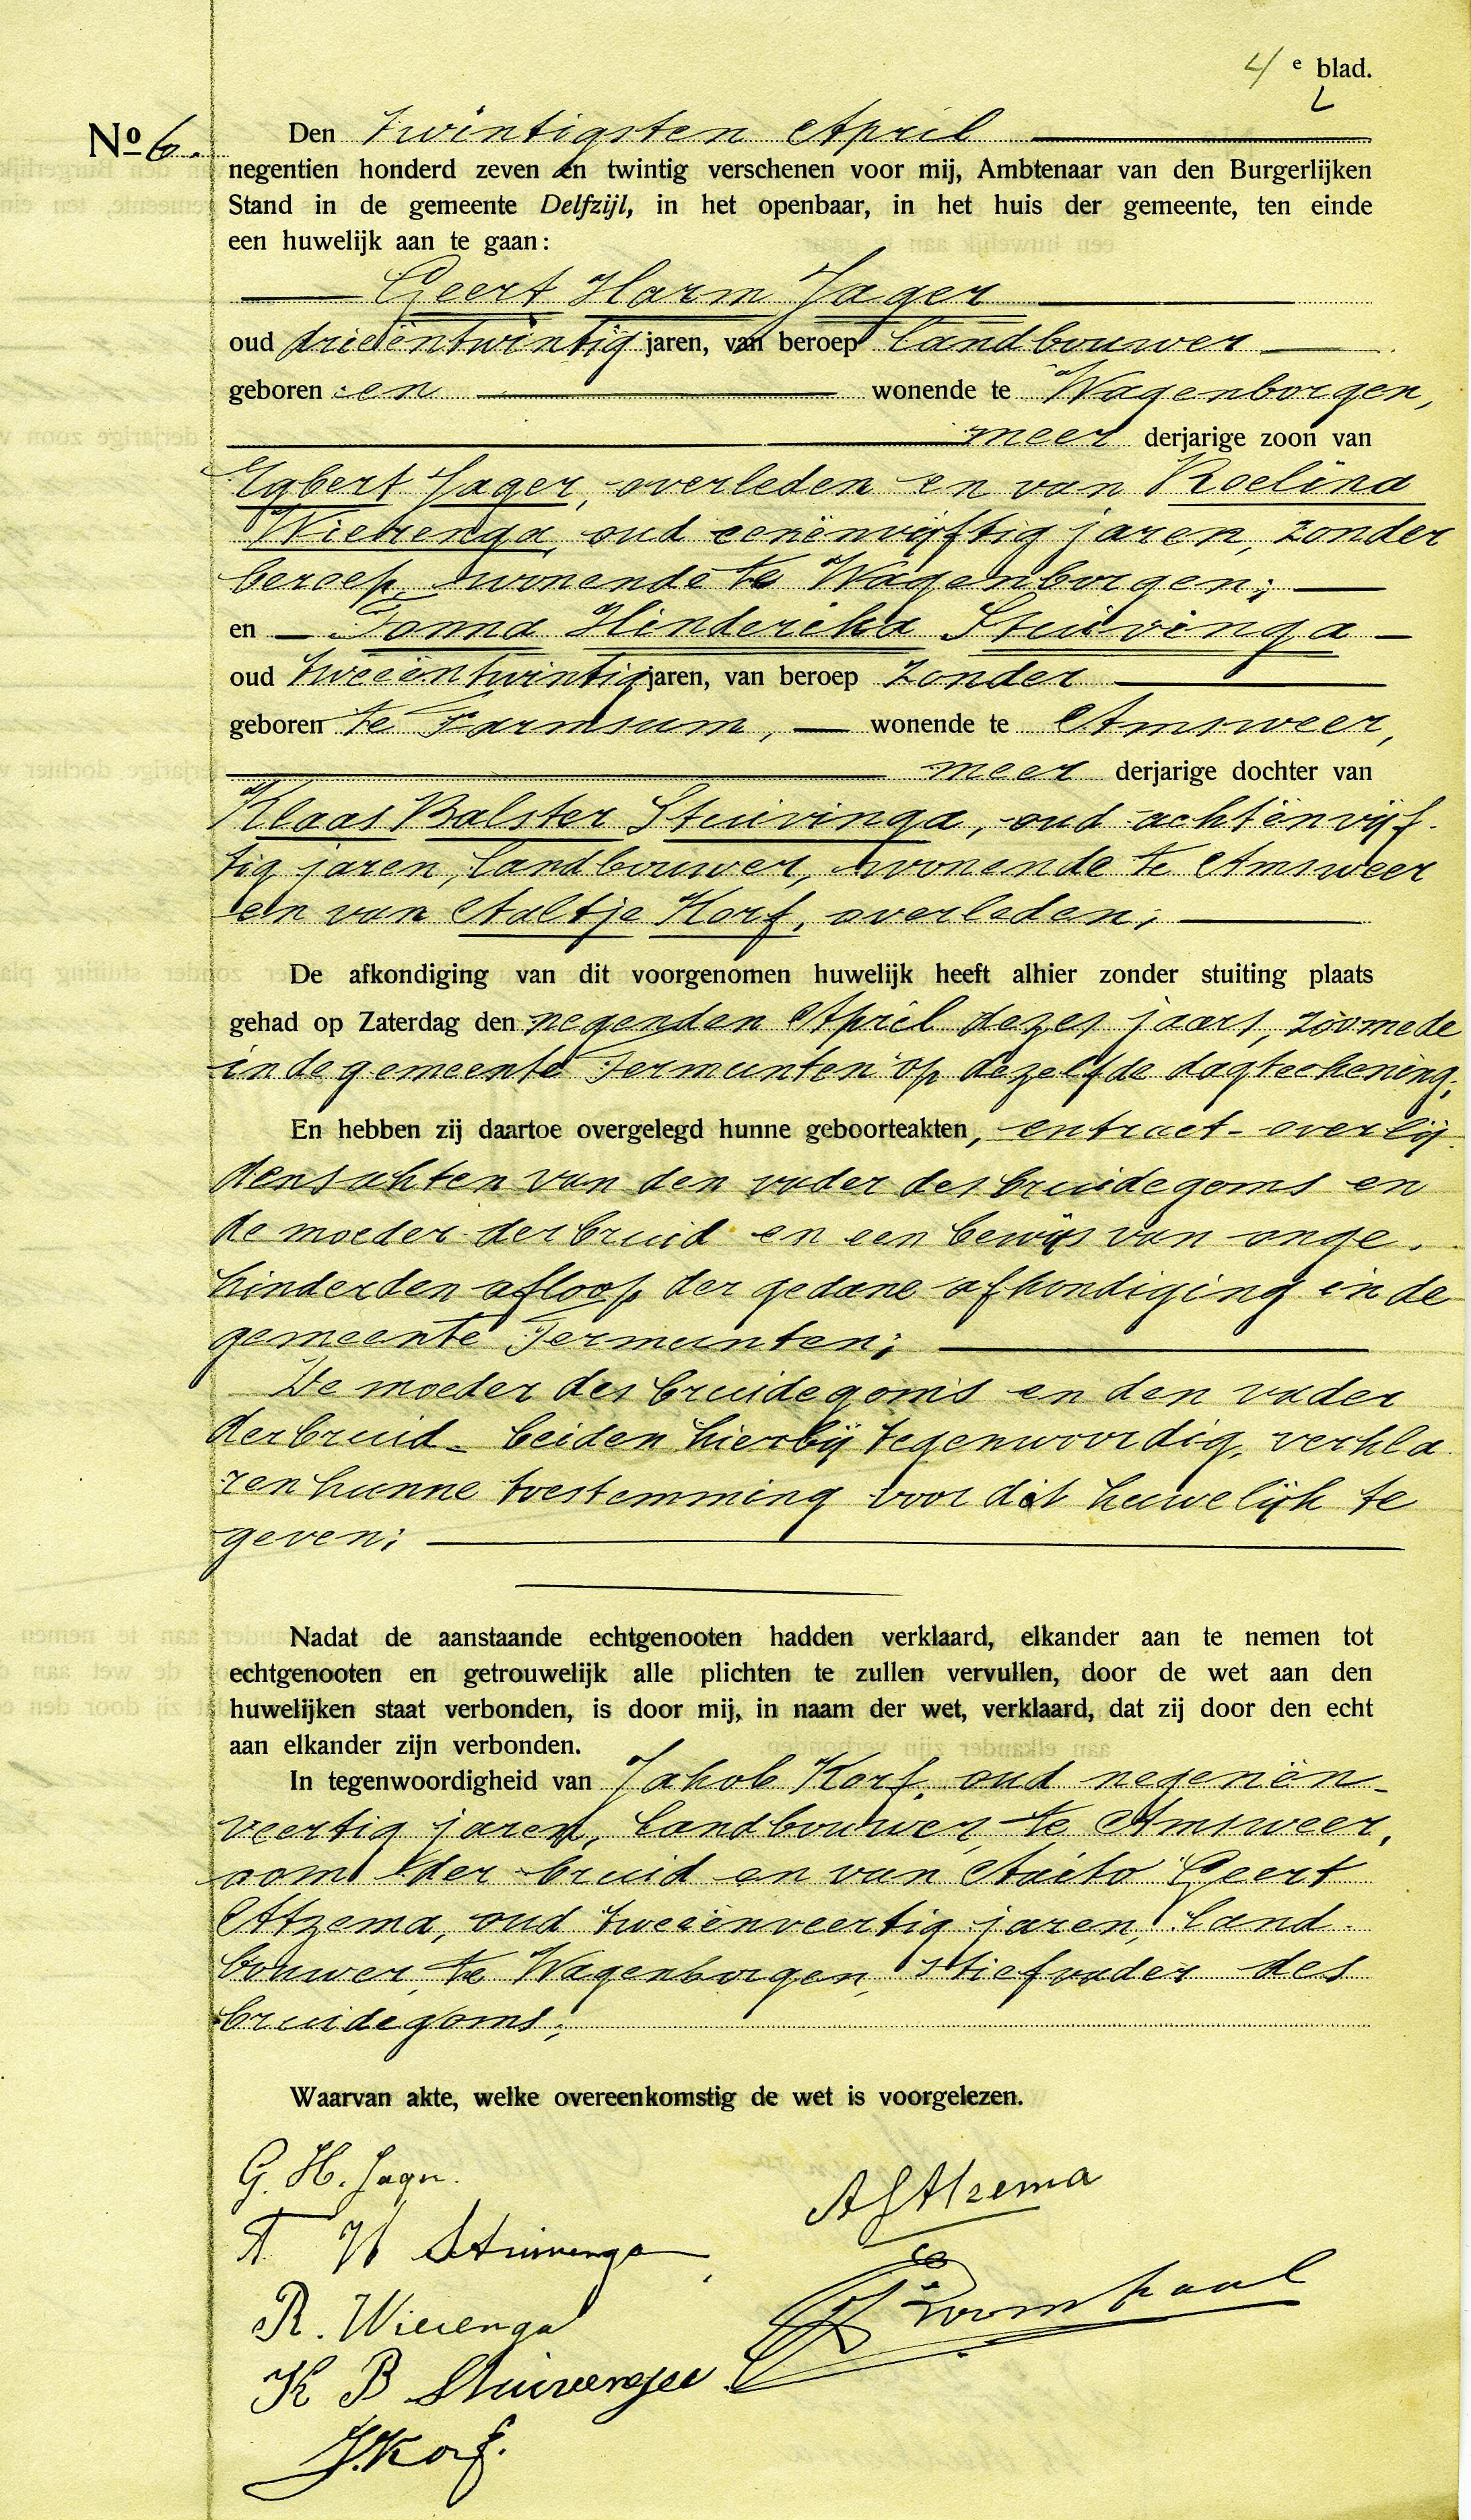 4 e blad.
No 6. Den twintigsten April
negentien honderd zeven en twintig verschenen voor mij, Ambtenaar van den Burgerlijken
Stand in de gemeente Delfzijl, in het openbaar, in het huis der gemeente, ten einde
een huwelijk aan te gaan:
Geert Harm Jager
oud drieëntwintig jaren, van beroep landbouwer
geboren en wonende te Wagenborgen,
meer derjarige zoon van
Egbert Jager, overleden en van Roelina
Wierenga, oud eenënvijftig jaren, zonder
beroep, wonende te Wagenborgen;
en Tonna Hinderika Stuivinga
oud tweeëntwintig jaren, van beroep zonder
geboren te Farmsum, wonende te Amsweer,
meer derjarige dochter van
Klaas Balster Stuivinga, oud achtënvijf-
tig jaren, landbouwer, wonende te Amsweer
en van Aaltje Korf, overleden;
De afkondiging van dit voorgenomen huwelijk heeft alhier zonder stuiting plaats
gehad op Zaterdag den negenden April dezes jaars, zoomede
in de gemeente Termunten op dezelfde dagteekening;
En hebben zij daartoe overgelegd hunne geboorteakten, extract-overlij-
densakten van den vader des bruidegoms en
de moeder der bruid en een bewijs van onge-
hinderden afloop der gedane afkondiging in de
gemeente Termunten;
De moeder des bruidegoms en den vader
der bruid beiden hierbij tegenwoordig, verkla-
ren hunne toestemming voor dit huwelijk te
geven;
Nadat de aanstaande echtgenooten hadden verklaard, elkander aan te nemen tot
echtgenooten en getrouwelijk alle plichten te zullen vervullen, door de wet aan den
huwelijken staat verbonden, is door mij, in naam der wet, verklaard, dat zij door den echt
aan elkander zijn verbonden.
In tegenwoordigheid van Jakob Korf, oud negenën-
veertig jaren, landbouwer, te Amsweer,
oom der bruid en van Aaito Geert
Atzema, oud tweeënveertig jaren, land-
bouwer, te Wagenborgen, stiefvader des
bruidegoms;
Waarvan akte, welke overeenkomstig de wet is voorgelezen.
G. H. Jager.
A G Atzema
T H Stuivenga
R. Wierenga
K B Stuivenga
J. Korf.